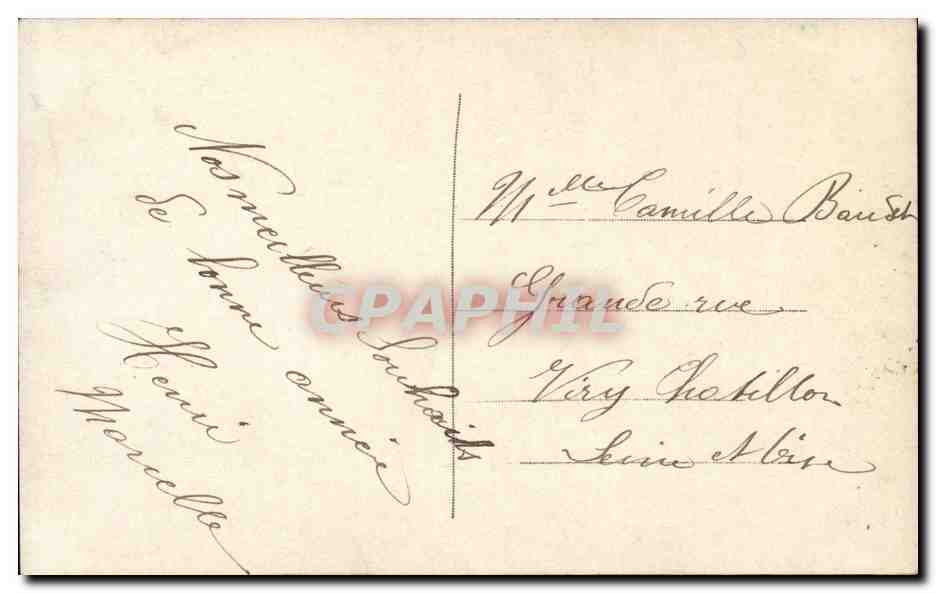 Nos meilleures Souhaits
de bonne année
Henri
Marcelle
Mlle Camille
Grande rue
Viry Chatillon
Seine et Oise
CPAPHIL